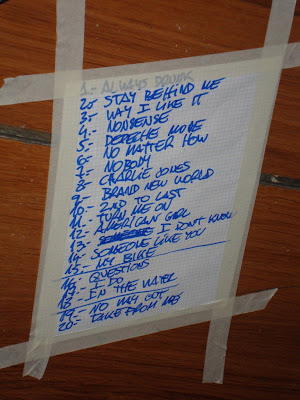 1.- ALWAYS DRUNK
2.- STAY BEHIND ME
3.- WAY I LIKE IT
4.- NONSENSE
5.- DEPECHE MODE
6.- NO MATTER HOW
7.- NOBODY
8.- CHARLIE JONES
9.- BRAND NEW WORLD
10.- 2ND TO LAST
11.- TURN ME ON
12.- AMERICAN GIRL
13.- I DON'T KNOW
14.- SOMEONE LIKE YOU
15.- MY BIKE
16.- QUESTIONS
17.- I DO
18.- IN THE WATER
19.- NO WAY OUT
20.- TAKE FROM ME